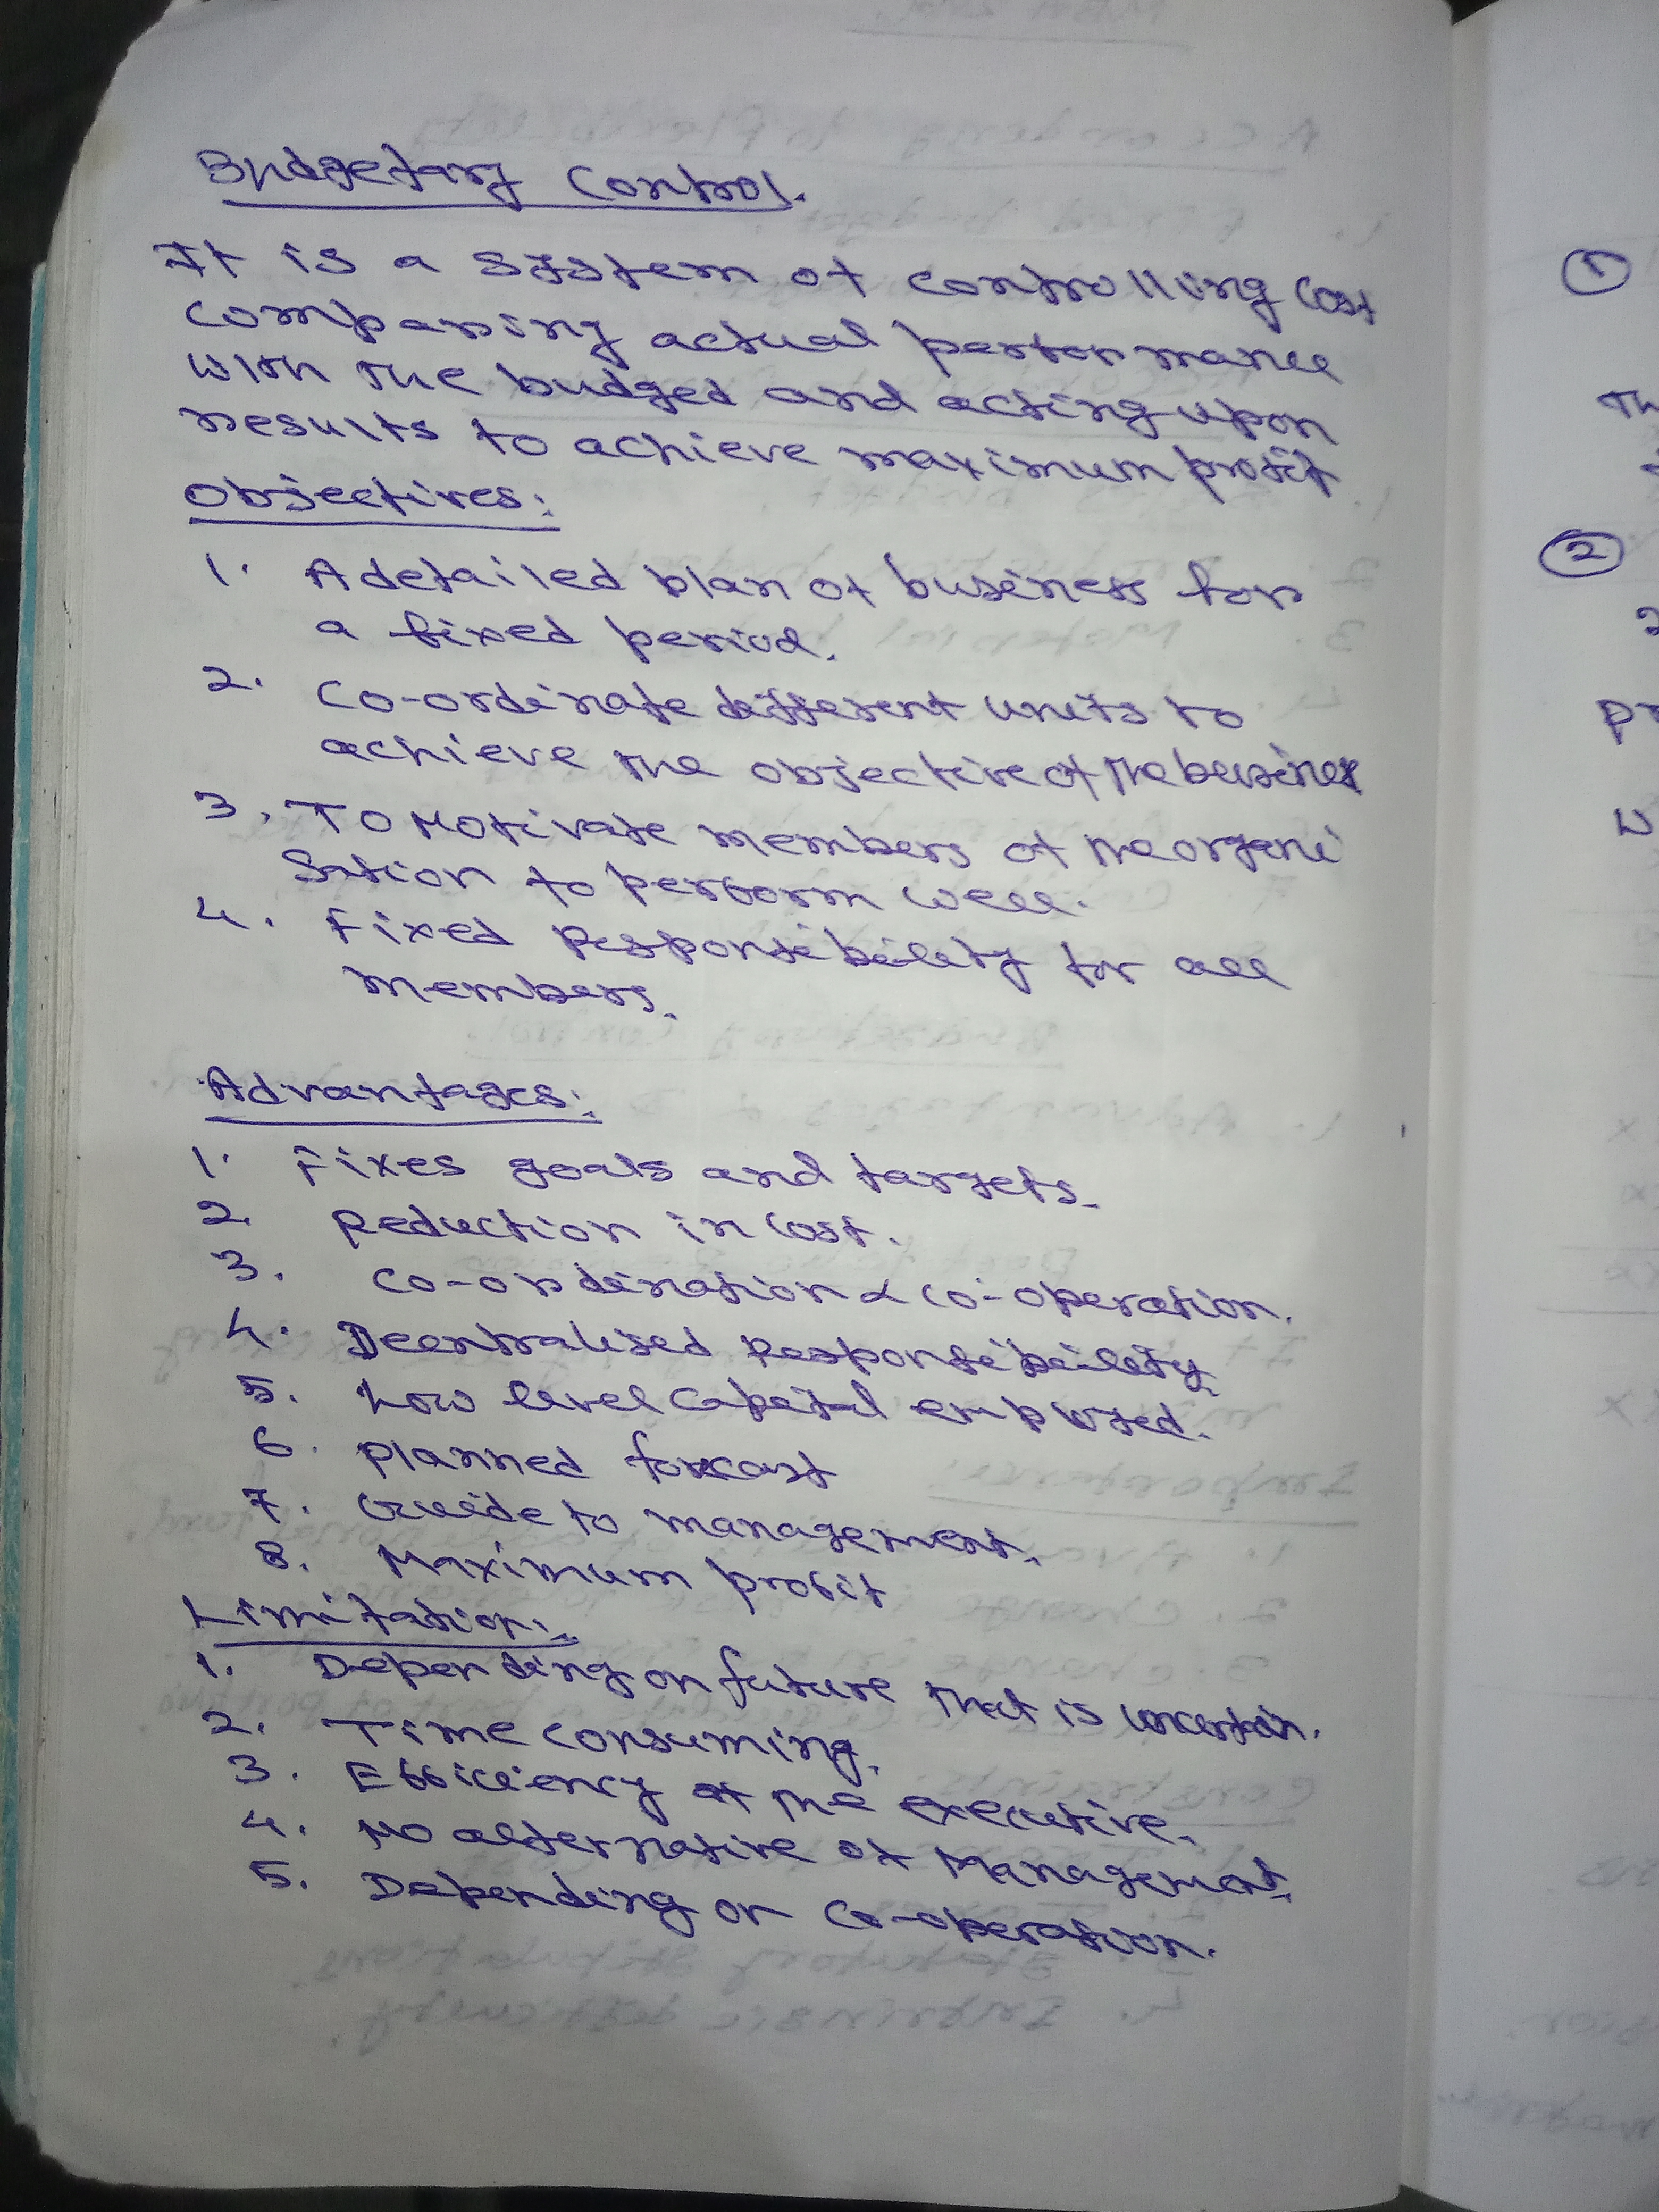 Budgetary Control.
It is a system of controlling cost
comparing actual performance
with the budged and acting upon
results to achieve maximum profit
Objectives:
1. A detailed plan of business for
a fixed period.
2. Co-ordinate different units to
achieve the objective of the business
3. To Motivate members of the organi
sation to perform well.
4. Fixed Responsibility for all
members.
Advantages:
1. Fixes goals and targets.
2. Reduction in cost.
3. Co-ordination & co-operation.
4. Decentralised Responsibility.
5. Low level capital employed.
6. planned forecast
7. Guide to management.
8. Maximum profit
Limitation:
1. Depending on future that is uncertain.
2. Time consuming.
3. Efficiency of the executive.
4. No alternative of Management.
5. Depending on Co-operation.
1
Th
2
pr
w